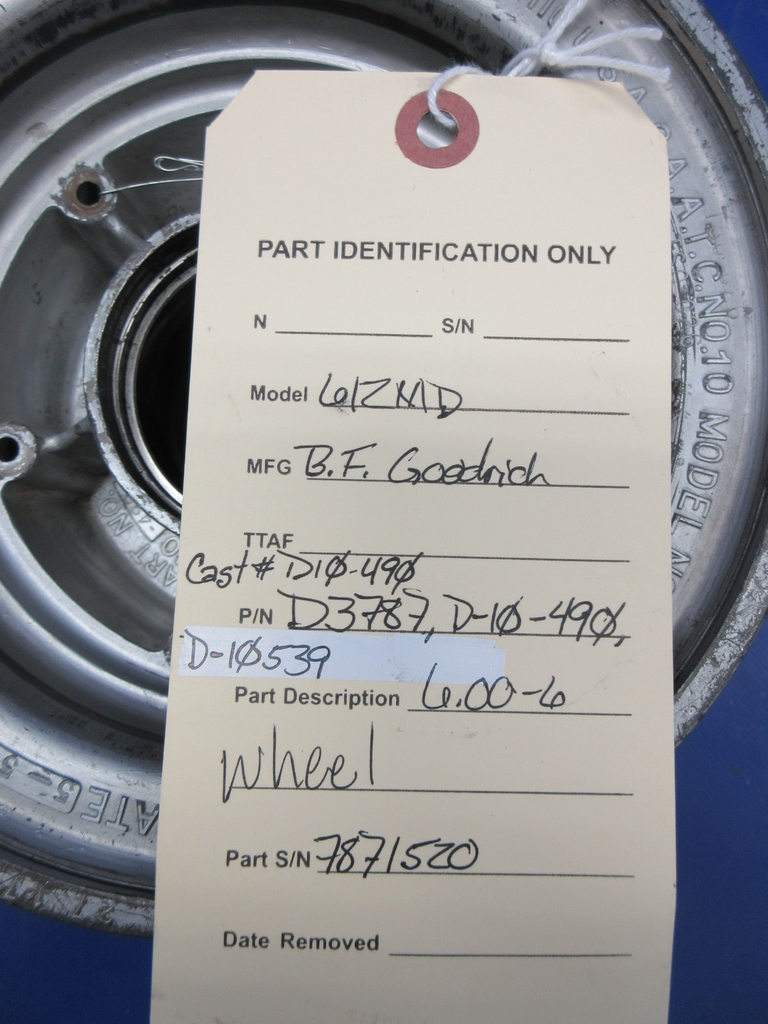 PART IDENTIFICATION ONLY
N S/N
Model 612MD
MFG B.F. Goodrich
TTAF
Cast # D1Ø-49Ø
P/N D3787, D-1Ø-49Ø,
D-1Ø539
Part Description 6.00-6
wheel
Part S/N 7871520
Date Removed
A.A.T.C. NO.10 MODEL
PART NO.